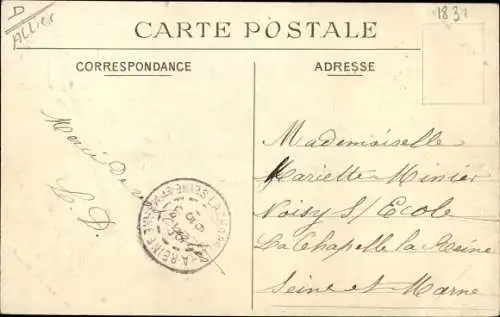 D
Allier
1831
CARTE POSTALE
CORRESPONDANCE
ADRESSE
Merci de
L. D.
LA CHAPELLE-LA-REINE SEINE-ET-MARNE
Mademoiselle
Mariette Minier
Noisy S/ Ecole
La Chapelle la Reine
Seine et Marne